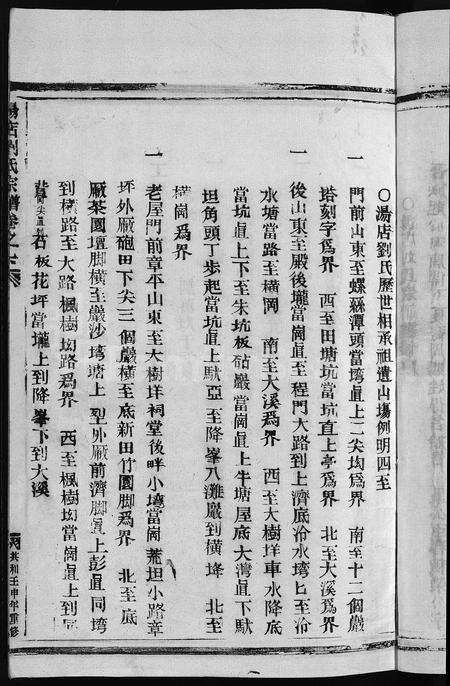 ○湯店劉氏歷世相承祖遺山塲例明四至
一　門前山東至螺螄潭頭當塆直上二尖坳為界　南至十二個巖
塔刻字為界　西至田塘坑當坑直上亭為界　北至大溪為界
一　後山東至殿後壠當崗直至程門大路到上濟底冷水塆上至冷
水塘當路至橫岡　南至大溪為界　西至大樹垟車水降底
當坑直上下至朱坑板砧巖當崗直上牛塘屋底大灣直下馱
坦角頭丁步起當坑直上馱亞至降峯八灘巖到橫垟　北至
橫崗為界
一　老屋門前章平山東至大樹垟祠堂後畔小塆當崗荒坦小路章
坪外廠砲田下尖三個巖橫至底新田竹園脚為界　北至底
廠茶園壇脚橫至巖沙塆塘上 外廠前濟脚直上彭直同塆
到橫路至大路楓樹坳路為界　西至楓樹坳當崗直上到
石板花坪當壠上到降峯下到大溪
湯店劉氏宗譜卷之
共和壬申年重修